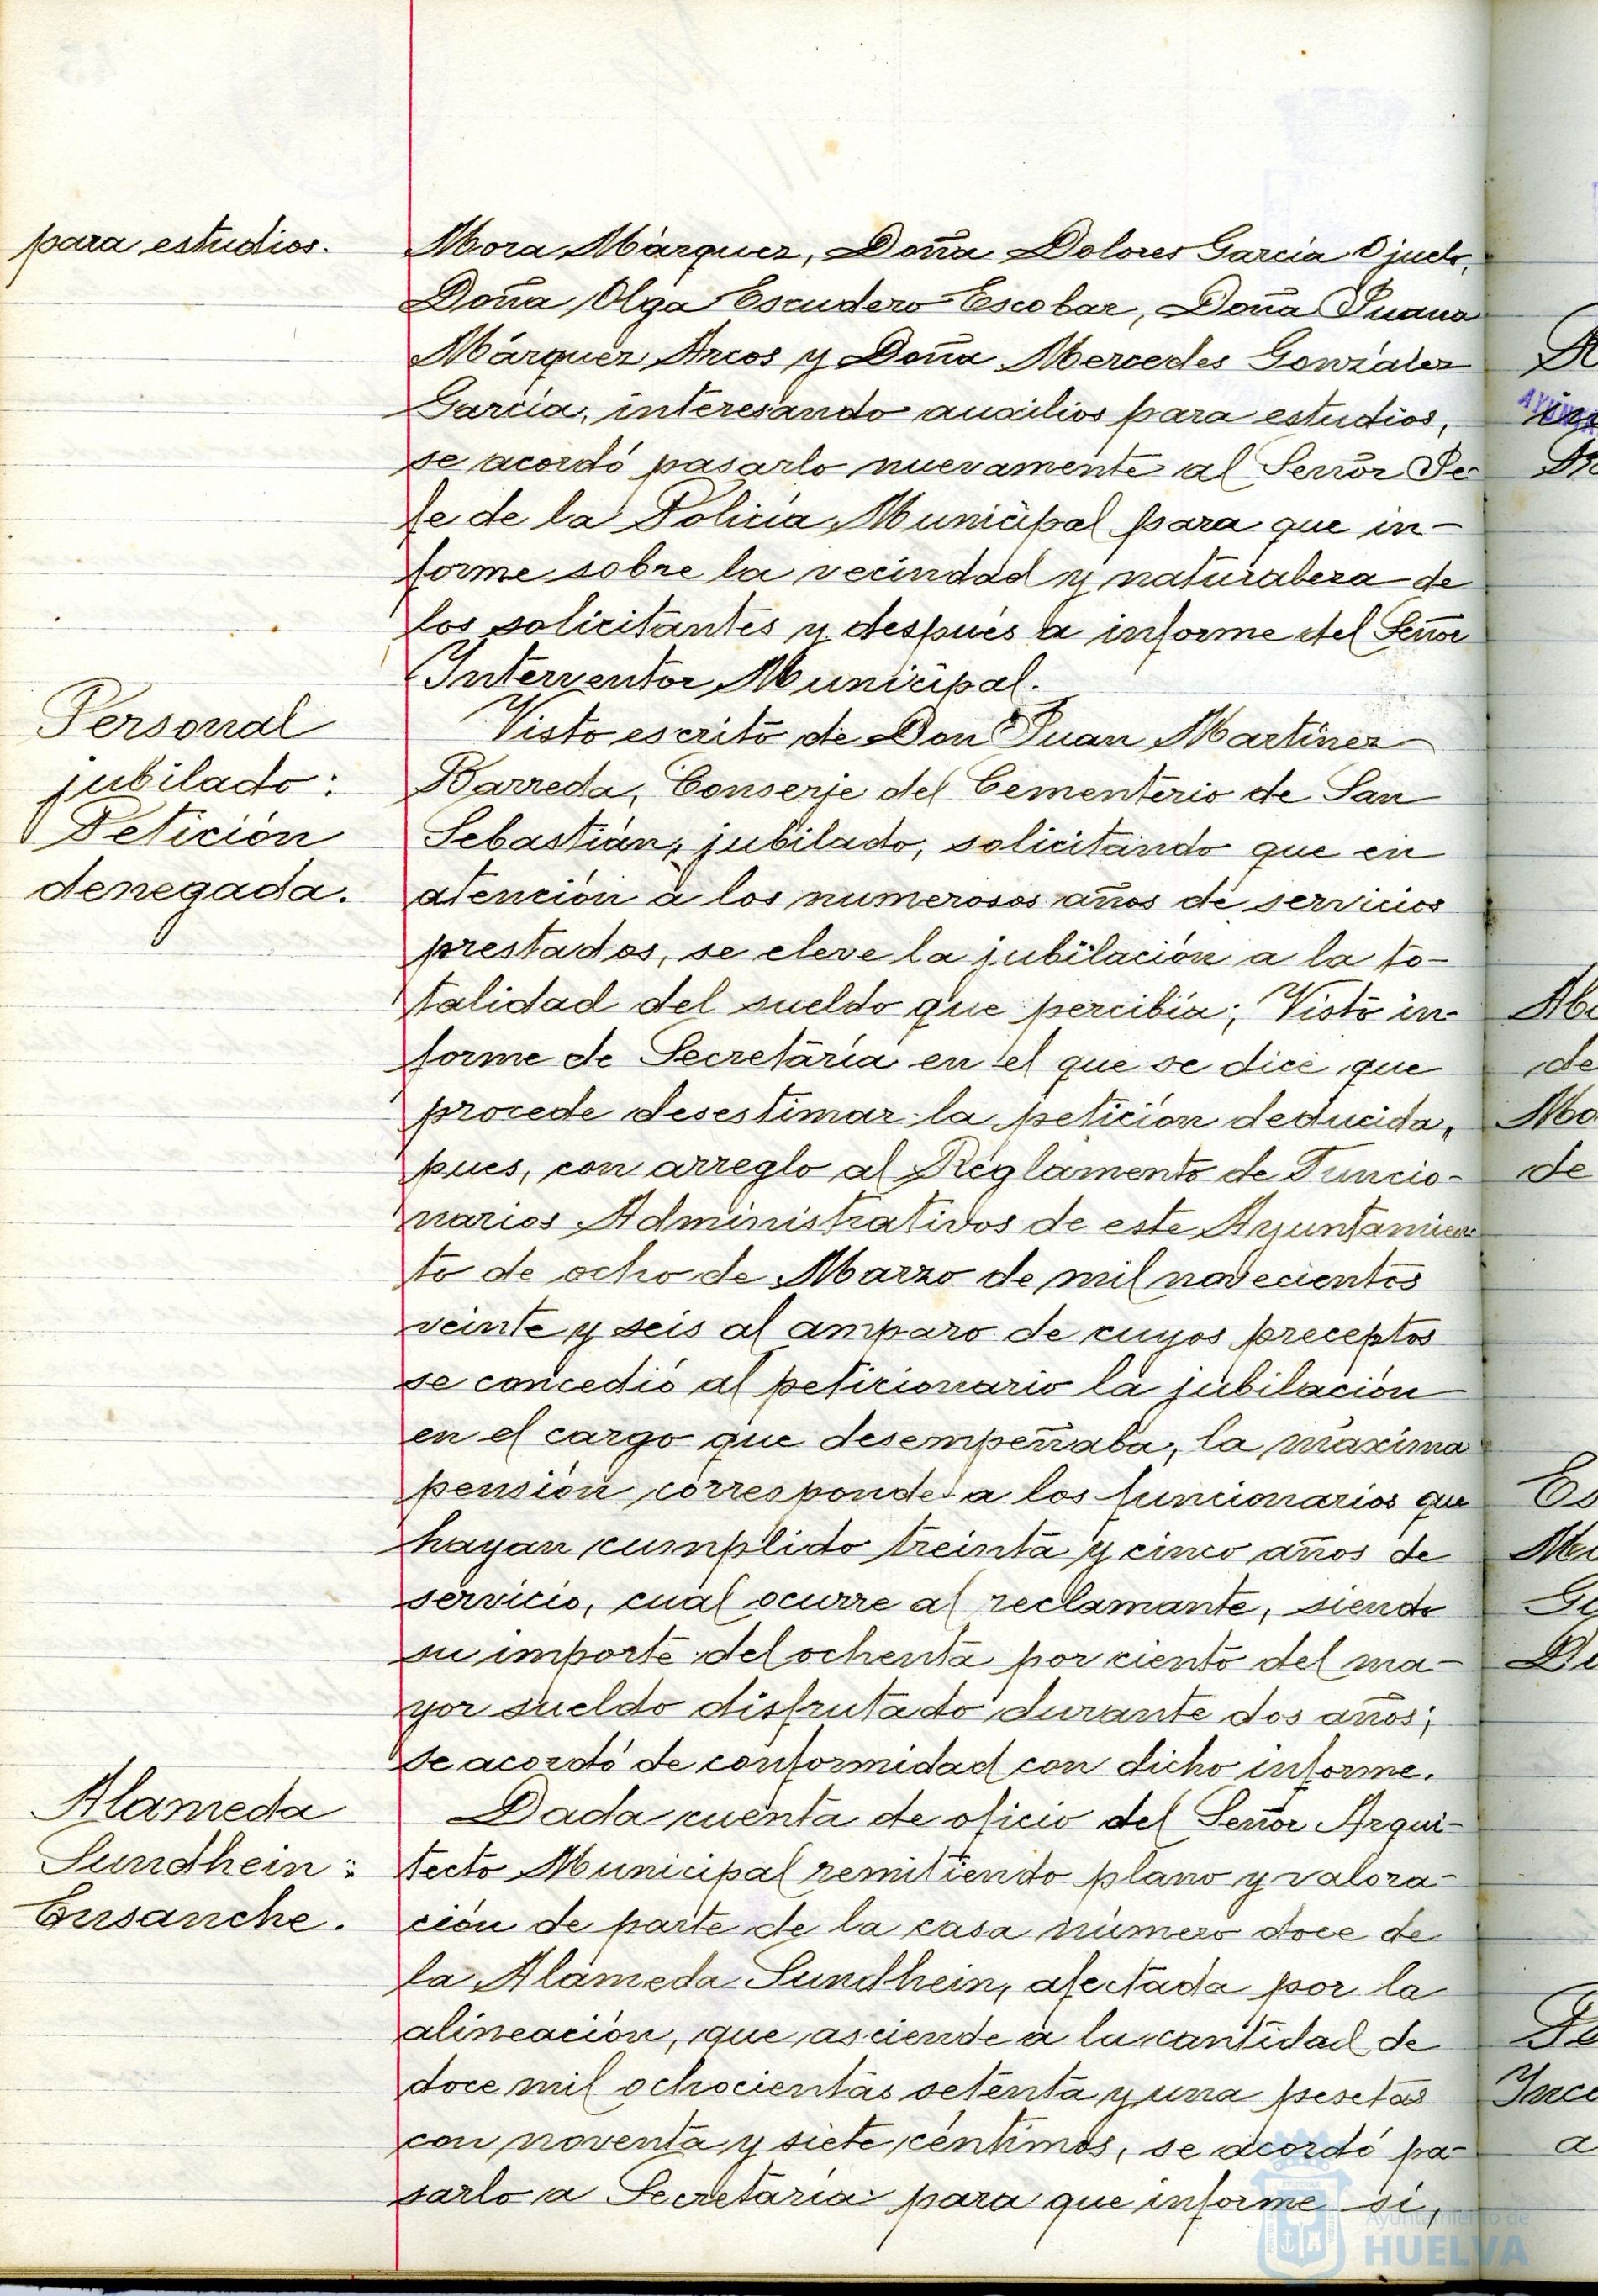 para estudios.
Mora Márquez, Doña Dolores Garcia Ojuelo,
Doña Olga Escudero Escobar, Doña Juana
Márquez Arcos y Doña Mercedes González
García, interesando auxilios para estudios,
se acordó pasarlo nuevamente al Señor Je-
fe de la Policía Municipal para que in-
forme sobre la vecindad y naturaleza de
los solicitantes y después a informe del Señor
Interventor Municipal.
Personal
jubilado:
Petición
denegada.
Visto escrito de Don Juan Martínez
Barreda, Conserje del Cementerio de San
Sebastián, jubilado, solicitando que en
atención a los numerosos años de servicios
prestados, se eleve la jubilación a la to-
talidad del sueldo que percibía; Visto in-
forme de Secretaría en el que se dice que
procede desestimar la petición deducida,
pues, con arreglo al Reglamento de Funcio-
narios Administrativos de este Ayuntamien-
to de ocho de Marzo de mil novecientos
veinte y seis al amparo de cuyos preceptos
se concedió al peticionario la jubilación
en el cargo que desempeñaba, la máxima
pensión corresponde a los funcionarios que
hayan cumplido treinta y cinco años de
servicio, cual ocurre al reclamante, siendo
su importe del ochenta por ciento del ma-
yor sueldo disfrutado durante dos años;
se acordó de conformidad con dicho informe.
Alameda
Sundhein:
Ensanche.
Dada cuenta de oficio del Señor Arqui-
tecto Municipal remitiendo plano y valora-
ción de parte de la casa número doce de
la Alameda Sundhein, afectada por la
alineación, que asciende a la cantidad de
doce mil ochocientas setenta y una pesetas
con noventa y siete céntimos, se acordó pa-
sarlo a Secretaría para que informe si,
Ayuntamiento de
HUELVA